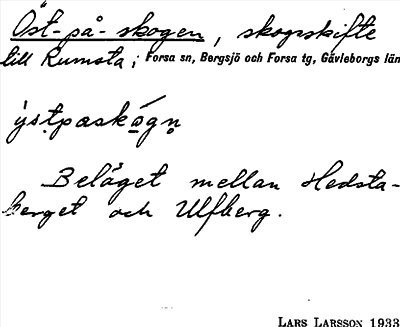 Öst-på-skogen, skogsskifte
till Rumsta; Forsa sn, Bergsjö och Forsa tg, Gävleborgs län
ỵstpaskǻgn̥
Beläget mellan Hedsta-
berget och Ulfberg.
LARS LARSSON 1933